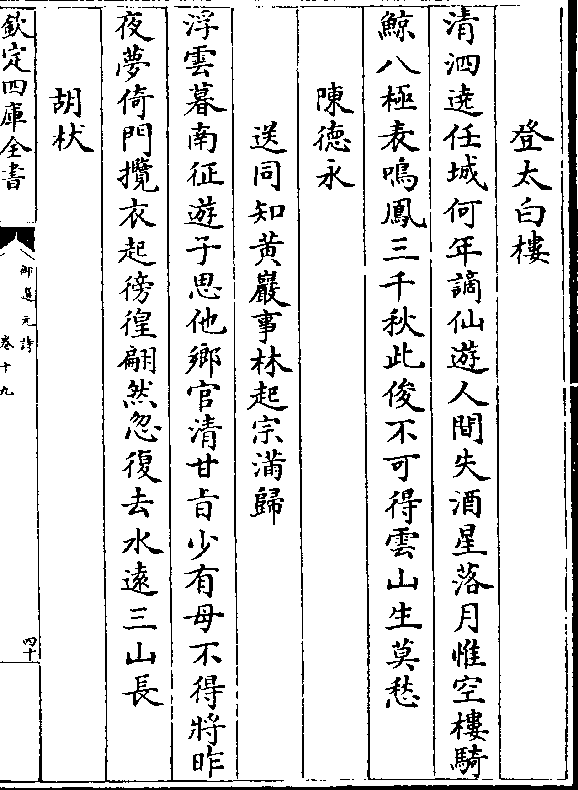 登太白樓
清泗遶任城何年謫仙遊人間失酒星落月惟空樓騎
鯨八極表鳴鳳三千秋此俊不可得雲山生莫愁
陳徳永
送同知黄巖事林起宗滿歸
浮雲暮南征遊子思他鄉官清甘㫖少有母不得將昨
夜夢倚門攬衣起徬徨翩然忽復去水遠三山長
胡栿
欽定四庫全書
御選元詩
卷十九
四十